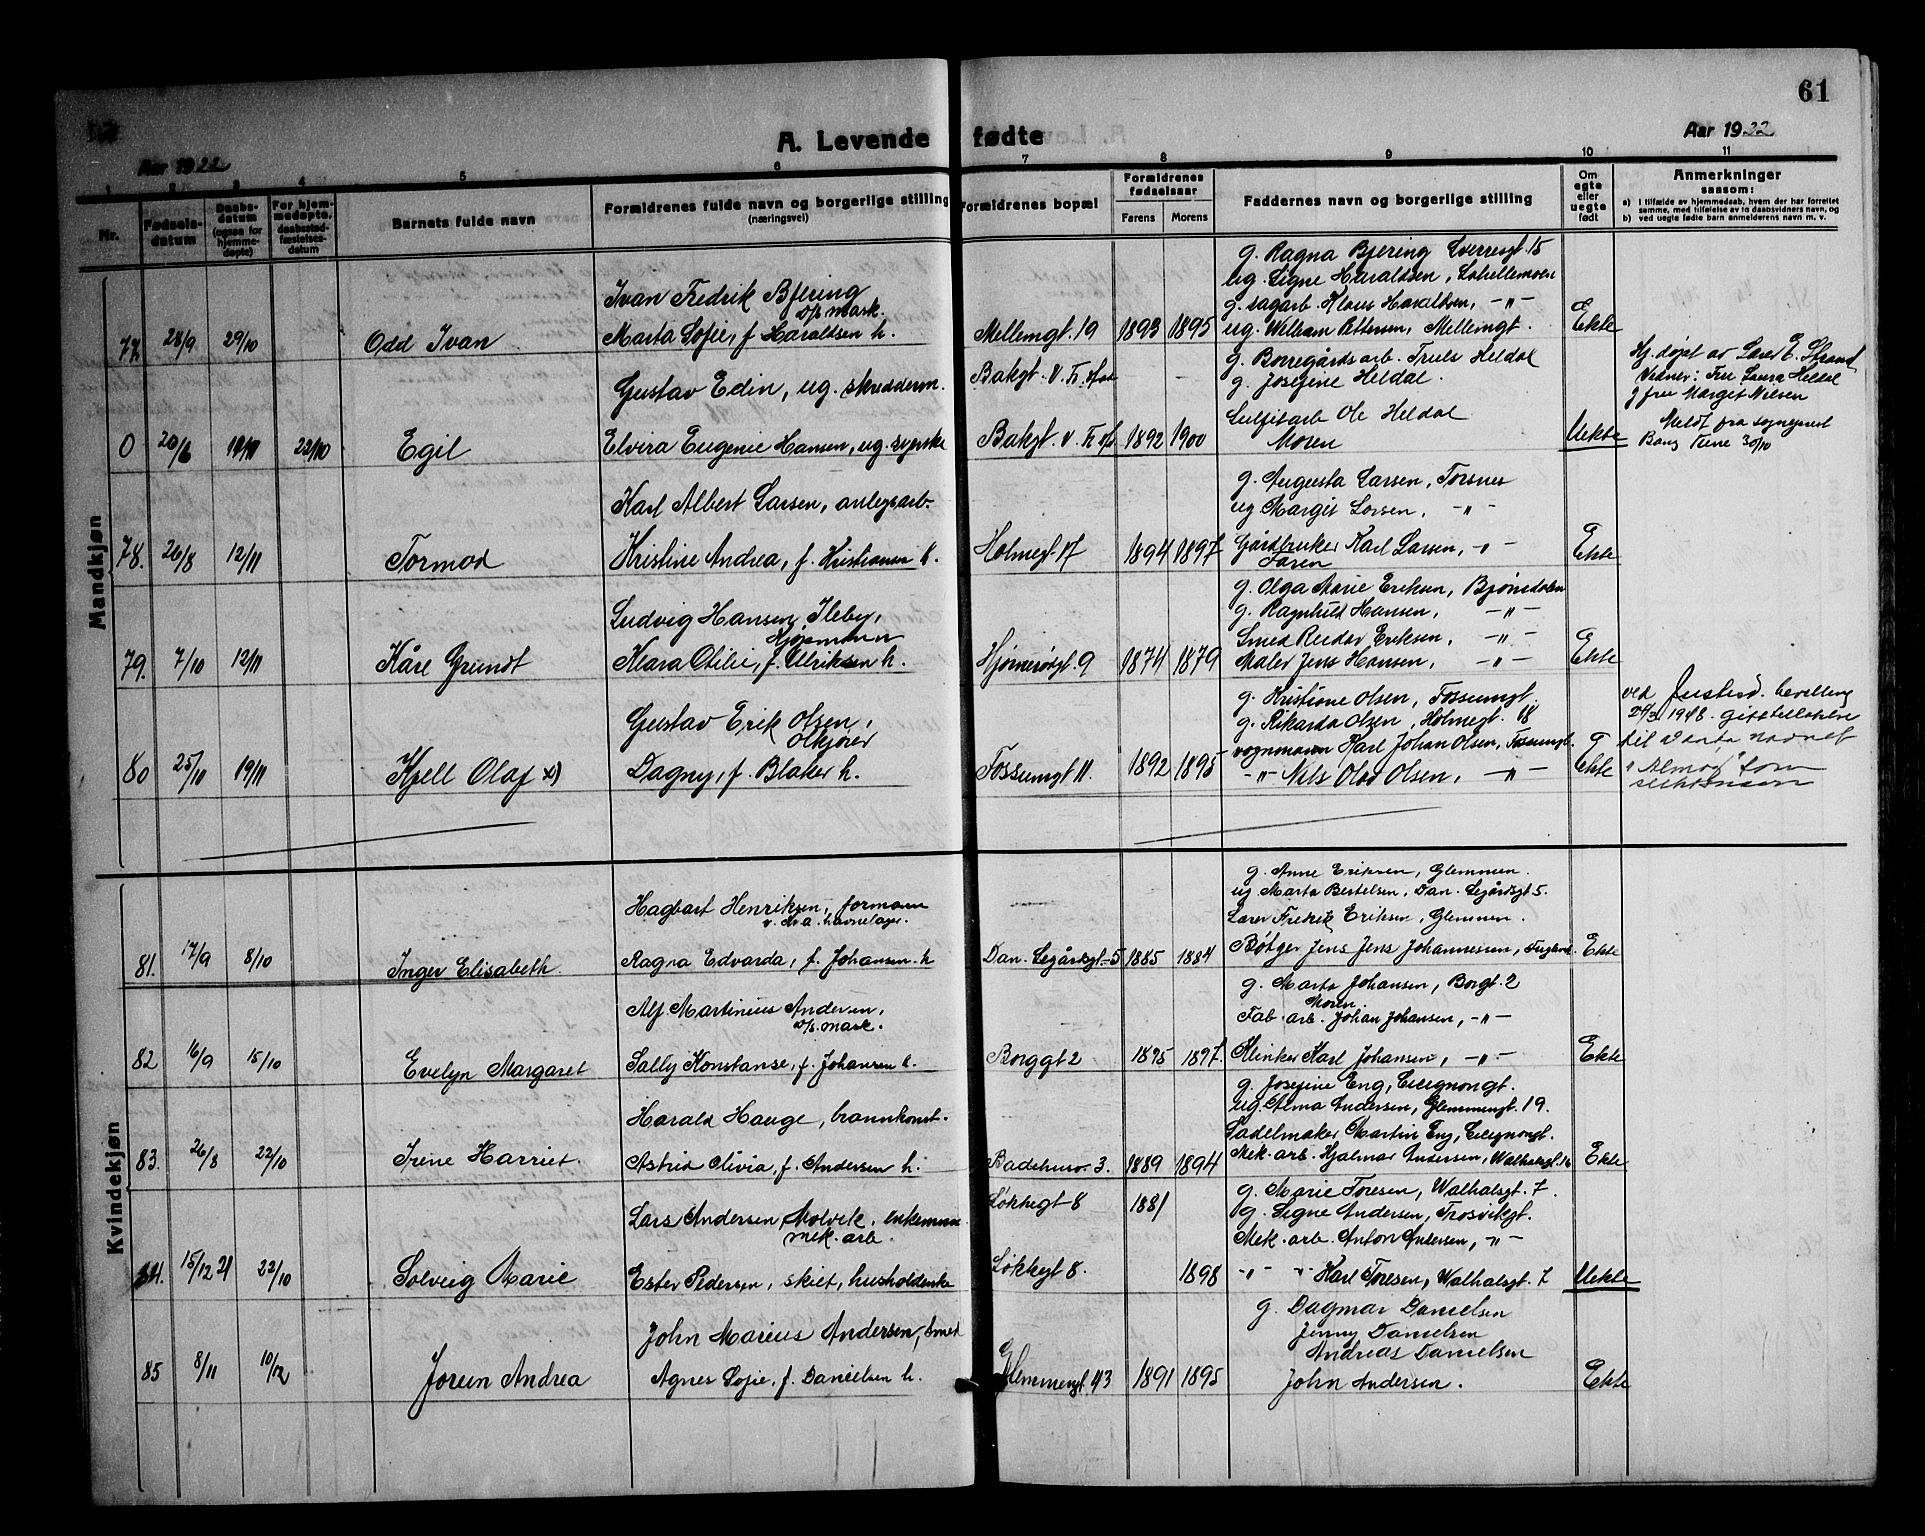 61
A. Levende fødte
Aar 1922
Aar 1922
1 2 3 4 5 6 7 8 9 10 11
Nr.
Fødsels-
datum
Daabs-
datum
(ogsaa for
hjemme-
døpte)
For hjem-
medøpte,
daabsstad-
fæstelses-
datum
Barnets fulde navn
Forældrenes fulde navn og borgerlige stilling
(næringsvei)
Forældrenes bopæl
Forældrenes
fødselsaar
Farens Morens
Faddernes navn og borgerlige stilling
Om
egte
eller
uegte
født
Anmerkninger
saasom:
a) I tilfælde av hjemmedaab, hvem der har forrettet
samme, med tilføielse av to daabsvidners navn, og
b) ved uegte fødte barn anmelderens navn m. v.
Mandkjøn
77. 28/9 29/10 Odd Ivan
Ivan Fredrik Bjering
Marta Sofie, f. Haraldsen h.
Mellemgt. 19 1893 1895
g. Ragna Bjering Sverresgt. 15
ug. Signe Haraldsen,
g. sagarb. Klaus Haraldsen, -"-
ug. William Pettersen, Mellemgt.
Ekte
0 20/6 22/10 Egil
Gustav Edin, ug. skredderm.
Elvira Eugenie Hansen, ug. syerske
Bakgt. V. Fr.
Bakgt. V. Fr. 1892 1900
g. Borregårdsarb. Truls Heldal
g. Josefine Heldal.
Sulfitarb Ole Heldal
Moren
Uekte
Hj. døpt av Lærer E. Strand
Vidner: Fru Laura Heldal
g fru Margit Nielsen
Meldt fra sogneprest
Bang Tune 30/10
78. 26/8 12/11 Tormod
Karl Albert Larsen, anlegsarb.
Kristine Andrea, f. Kristiansen h.
Holmegt. 17 1894 1897
g. Augusta Larsen, Torsnes
ug Margit Larsen, -"-
Gårdbruker Karl Larsen, -"-
Faren
Ekte
79. 7/10 12/11 Kåre Grundt
Ludvig Hansen Ileby,
Kjøpmann
Klara Otilie, f. Ulriksen h.
1874 1879
g. Olga Marie Eriksen, Bjørnsdalen
g. Ragnhild Hansen, -"-
Smed Reidar Eriksen, -"-
Maler Jens Hansen, -"-
Ekte
80 25/10 19/11 Kjell Olaf x)
Gustav Erik Olsen,
Ølkjører
Dagny, f. Blaker h.
Fossumgt 11. 1892 1895
g. Kristiane Olsen, Fossumgt.
g. Rikarda Olsen, Holmegt. 18
vognmann Karl Johan Olsen, Fossumgt.
-"- Nils Olav Olsen, -"-
Ekte
ved Justisd. bevilling
24/3 1948.
til navnet
"Almod" som
slektsnavn
Kvindekjøn
81. 17/9 8/10 Inger Elisabeth
Hagbart Henriksen, formann
Ragna Edvarda, f. Johansen h
Dan. Legårdsgt. 5 1885 1884
g. Anne Eriksen, Glemmen.
ug. Marta Bertelsen, Dan. Legårdsgt 5.
Lærer Fredrik Eriksen, Glemmen.
Bøtger Jens Jens Johannessen,
Ekte
82 16/9 15/10 Evelyn Margaret
Alf Martinius Andersen,
Sally Konstanse, f. Johansen h.
Borggt 2 1895 1897.
g. Marta Johansen, Borgt. 2
Moren
Fab. arb. Johan Johansen, -"-
Klinker Karl Johansen, -"-
Ekte
83. 26/8 22/10 Irene Harriet.
Harald Hauge, brannkonst.
Astrid Olivia, f. Andersen h.
3. 1889 1894
g. Josefine Eng, Cicignongt.
ug. Alma Andersen, Glemmengt. 19.
Sadelmaker Martin Eng, Cicignongt.
Mek. arb. Hjalmar Andersen, Walhalsgt. 16
Ekte
84. 15/12 21 22/10 Solveig Marie
Lars Andersen Molvik, enkemann
mek. arb.
Ester Pedersen, skilt, husholderske
Løkkegt 8 1881
Løkkegt 8. 1898
g. Marie Toresen, Walhalsgt. 7.
g. Signe Andersen, Trosvikgt.
Mek. arb. Anton Andersen, -"-
-"- " Karl Toresen, Walhalsgt. 7
Uekte
85 8/11 10/12 Jorun Andrea
John Marius Andersen, smed
Agnes Sofie, f. Danielsen h.
Glemmengt 43 1891 1895
g. Dagmar Danielsen
Jenny Danielsen
Andreas Danielsen
John Andersen.
Ekte